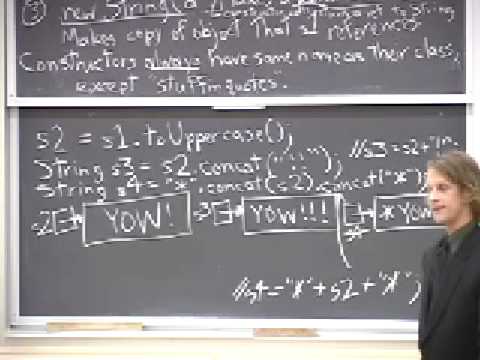 ③ new String(
Makes copy of object that s1 references
Constructors always have same name as their class,
except "stuffinquotes".
s2 = s1.toUppercase();
//s3 = s2+"!!
String s3 = s2.concat("!!");
String s4 = "*".concat(s2).concat("*");
s2 YOW! s3 YOW!!! *YOW
//s4="*"+s2+"*";